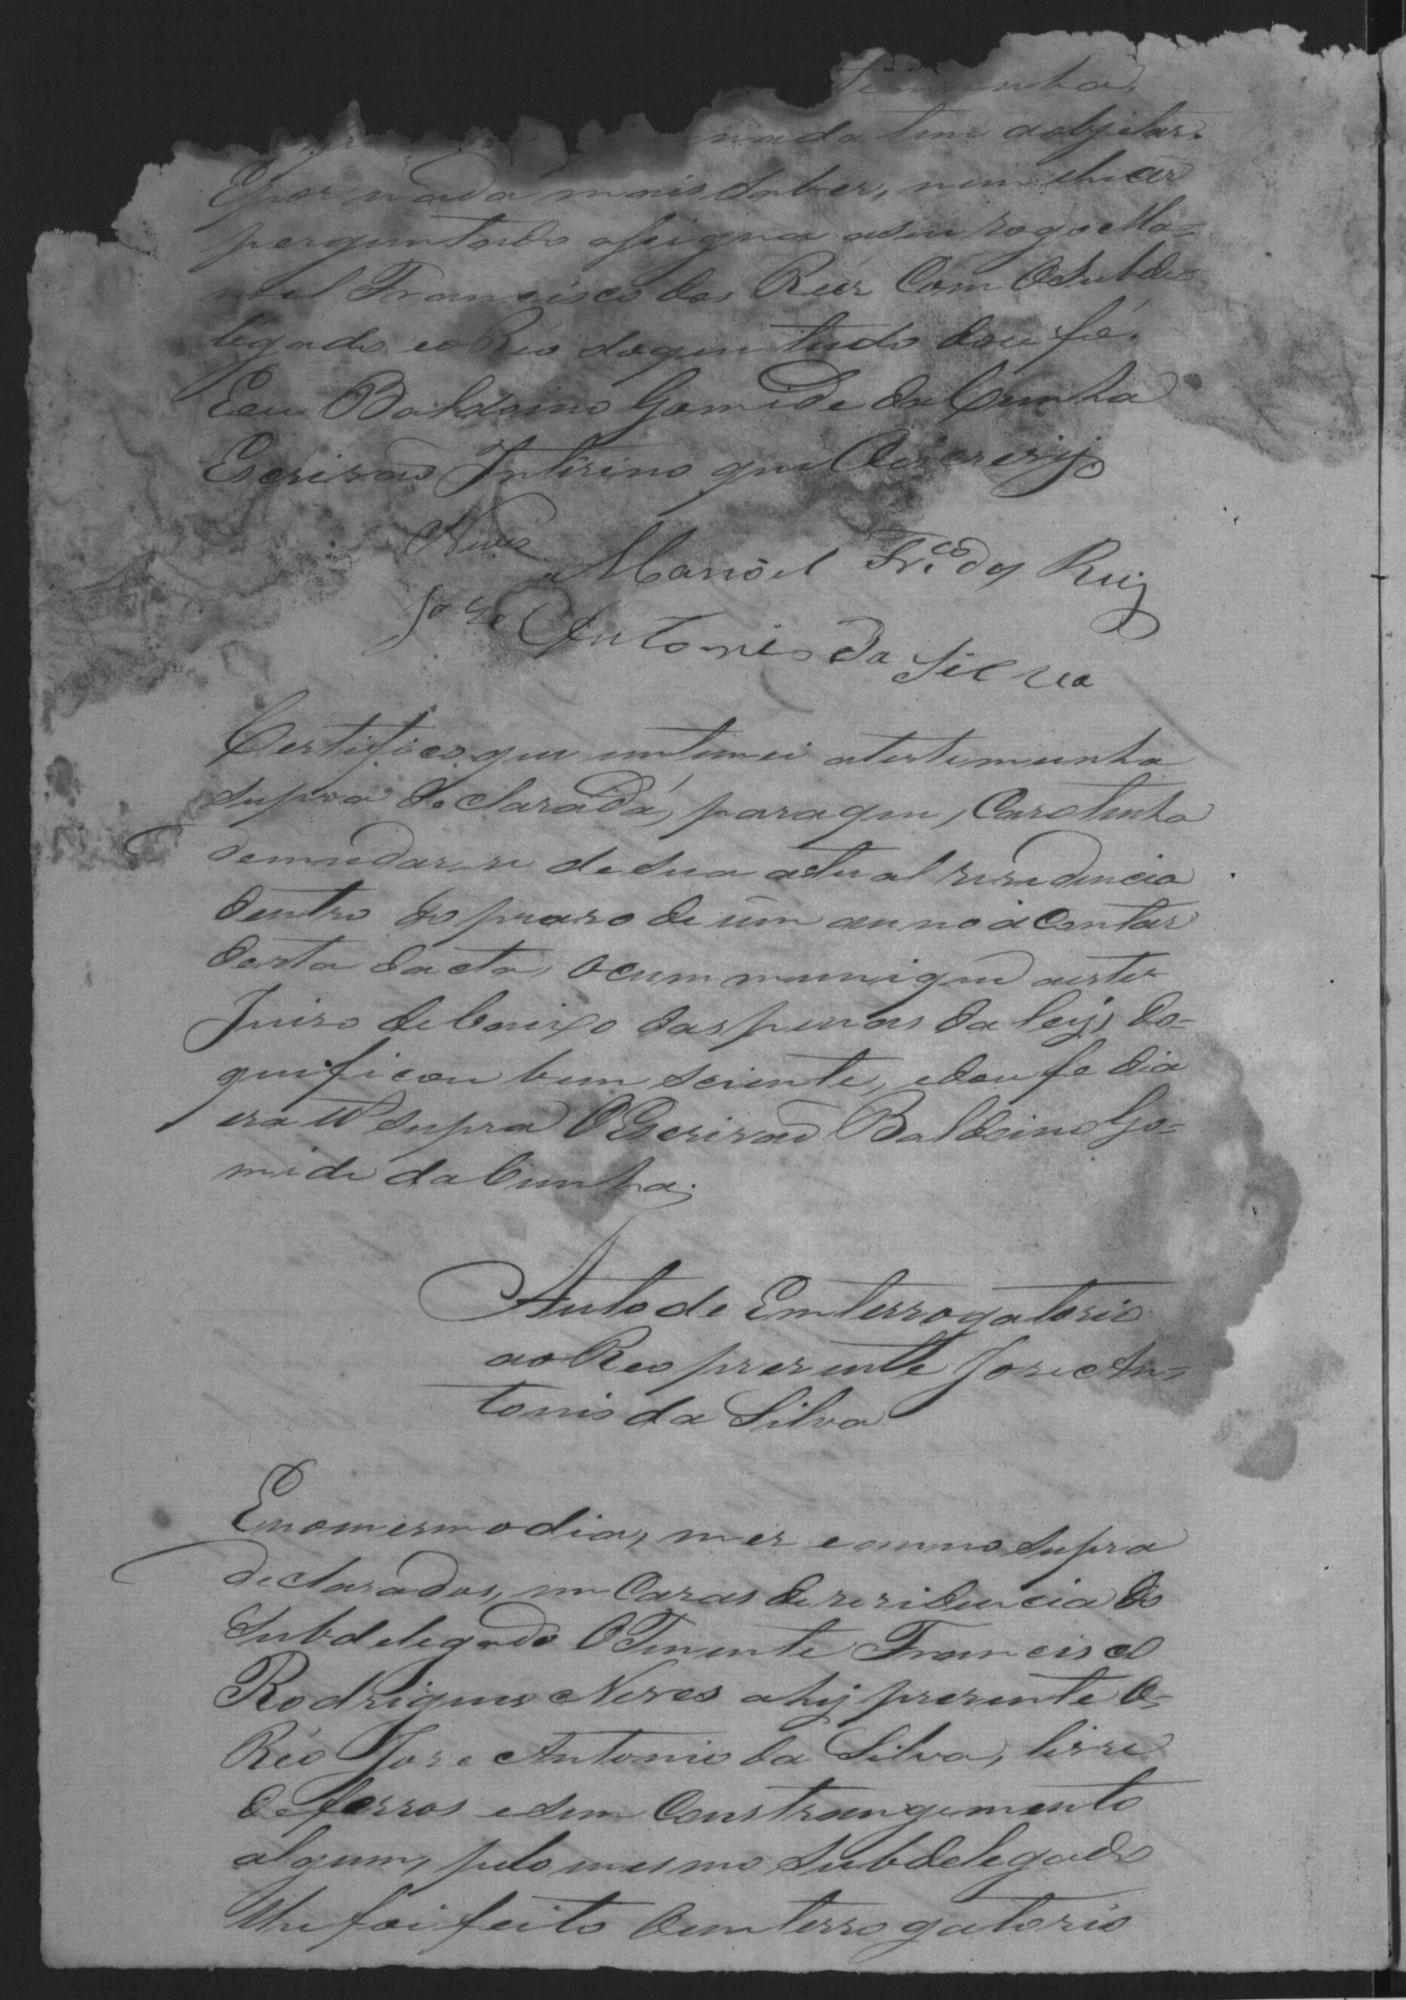 nada tem a objetar.
E por nada mais saber, nem lhe ser
perguntado assigna a seu rogo Ma-
nuel Francisco dos Reis Com O Subde-
legado eo Réo do que tudo dou fé.
Eeu Baldoino Gomide da Cunha
Escrivaõ Interino que O escrevy
Neves
Manoel Fr.co dos Reis
Jose Antonio da Silva
Certifico que entimei a testemunha
supra declarada, para que, Caso tenha
de mudar-se de sua actual residencia
dentro do praso de um anno a contar
desta dacta, o cummunique a este
Juiso debaixo das penas da ley; do
que ficou bem sciente, e dou fe dia
era ut supra O Escrivaõ Baldoino Go-
mide da Cunha.
Auto de Emterrogatorio
ao Reo presente Jose An-
tonio da Silva
E no mesmo dia, mes e anno supra
declarados, em Casas de residencia do
Subdelegado O Tenente Francisco
Rodrigues Neves ahy presente O
Réo Jose Antonio da Silva, livre
de ferros e sem Constrangemento
algum, pelo mesmo Subdelegado
lhe foi feito O emterrogatorio